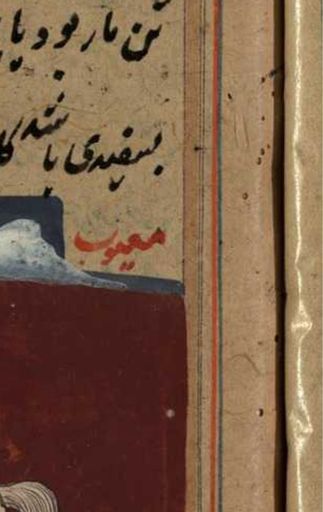 تن مار بود یا
بسفیدی باشد
معیوب